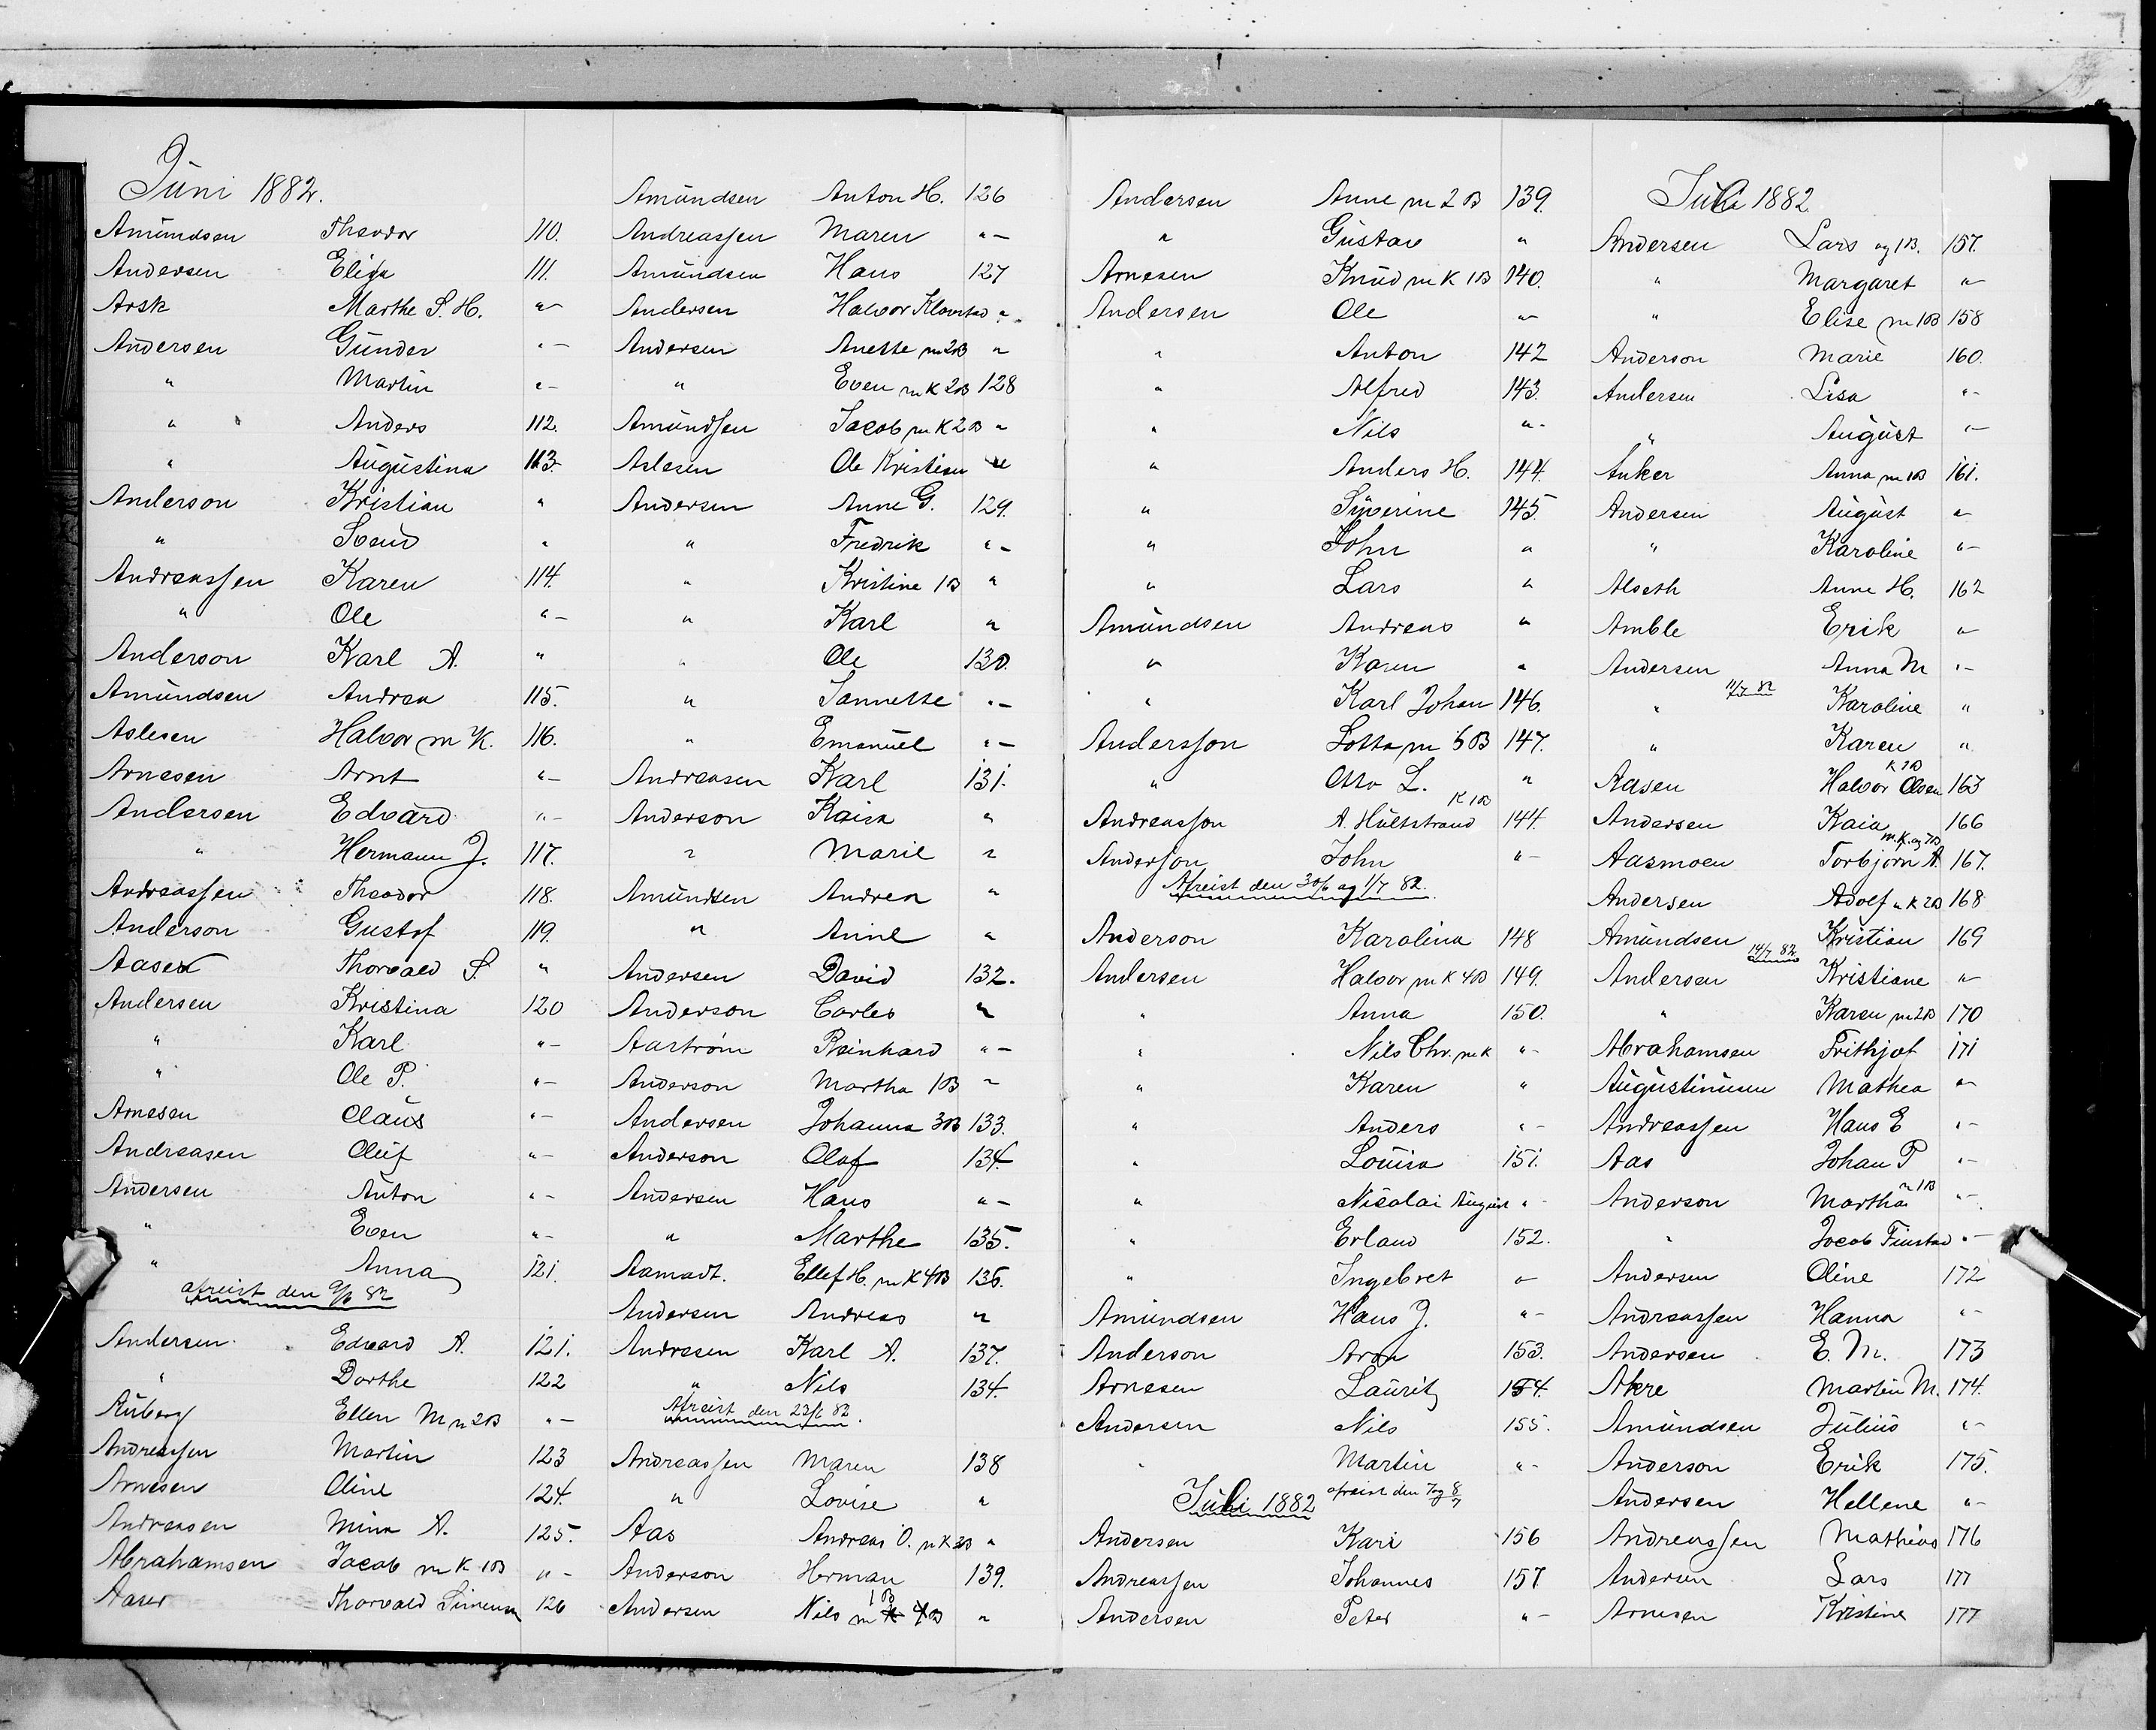 Juni 1882.
Amundsen Theodor 110.
Andersen Elisa 111.
Arsk Marthe S. H. " -
Andersen Gunder " -
" Martin " -
" Anders 112.
" Augustina 113.
Anderson Kristian "
" Svend "
Andreassen Karen 114.
" Ole " -
Anderson Karl A. "
Amundsen Andrea 115.
Aslesen Halvor m K. 116.
Arnesen Arnt " -
Andersen Edvard " -
" Hermann J. 117.
Andreassen Theodor 118.
Anderson Gustof 119.
Aasen Thorvald S "
Andersen Kristina 120
" Karl " -
" Ole P. " -
Arnesen Claus " -
Andreasen Oluf " -
Andersen Anton " -
" Even " -
" Anna 121.
afreist den 9/6 82
Andersen Edvard A. 121.
" Dorthe 122
Auberg Ellen M m 2 B " -
Andreassen Martin 123
Arnesen Oline 124.
Andreasen Mina A. 125.
Abrahamsen Jacob m K 1 B " -
Aaser Thorvald Simensen 126
Amundsen Anton H. 126
Andreassen Maren " -
Amundsen Hans 127
Andersen Halvor Klovstad "
Andersen Anette m 2 B "
" Even m K 2 B 128
Amundsen Jacob m K 2 B "
Aslesen Ole Kristian "
Andersen Anne G. 129.
" Fredrik " -
" Kristine 1 B "
" Karl "
" Ole 130.
" Jannette " -
" Emanuel " -
Andreasen Karl 131.
Anderson Kaisa "
" Marie "
Amundsen Andrea "
" Anne "
Andersen David 132.
Anderson Carles "
Aastrøm Reinhard " -
Anderson Martha 1 B "
Andersen Johanna 3 B 133.
Anderson Olaf 134.
Andersen Hans " -
" Marthe 135.
Aamodt. Ellef H. m K 4 B 136.
Andersen Andreas "
Andresen Karl A. 137.
" Nils 134.
Afreist den 23/6 82.
Andreassen Maren 138
" Lovise "
Aas Andreas O. m K 3 B "
Anderson Herman 139.
Andersen Nils m 1 B "
Andersen Anne m 2 B 139.
" Gustav "
Arnesen Knud m K 1 B 140.
Andersen Ole " -
" Anton 142
" Alfred 143.
" Nils " -
" Anders H. 144.
" Syverine 145.
" John "
" Lars "
Amundsen Andreas "
" Karen "
" Karl Johan 146.
Andersson Lotta m 5 B 147.
" Otto L. "
Andreasson A. Hultstrand K 1 B 144.
Anderson John " -
Afreist den 30/6 og 1/7 82.
Anderson Karolina 148
Andersen Halvor m K 4 B 149.
" Anna 150.
" Nils Chr. m K " -
" Karen "
" Anders " -
" Louisa 151.
" Nicolai August "
" Erland 152.
" Ingebret "
Amundsen Hans J. " -
Anderson Aron 153.
Arnesen Lauritz 154.
Andersen Nils 155.
" Martin " -
Juli 1882 afreist den 7 og 8/7
Andersen Kari 156
Andreassen Johannes 157
Andersen Peter " -
Juli 1882
Andersen Lars og 1 B. 157.
" Margaret "
" Elise m 1 B 158
Anderson Marie 160.
Andersen Lisa " -
" August " -
Anker Anna m 1 B 161.
Andersen August "
" Karoline " -
Alseth Anne H. 162
Amble Erik "
Andersen Anna M " -
11/7 82
" Karoline "
" Karen "
Aasen Halvor Olsen K 2 B 163
Andersen Kaia 166
Aasmoen Torbjørn A. m. K. og 7 B 167.
Andersen Adolf m K 2 B 168
Amundsen Kristian 169
14/7 82
Andersen Kristiane "
" Karen m 2 B 170
Abrahamsen Frithjof 171
Augustinusen Mathea "
Andreassen Hans E " -
Aas Johan P " -
Anderson Martha m 1 B " -
" Jacob Finstad " -
Andersen Oline 172
Andreassen Hanna " -
Andersen E. M. 173
Akre Martin M. 174.
Amundsen Julius " -
Anderson Erik 175.
Andersen Hellene " -
Andreassen Mathias 176
Andersen Lars 177
Arnesen Kristine 177